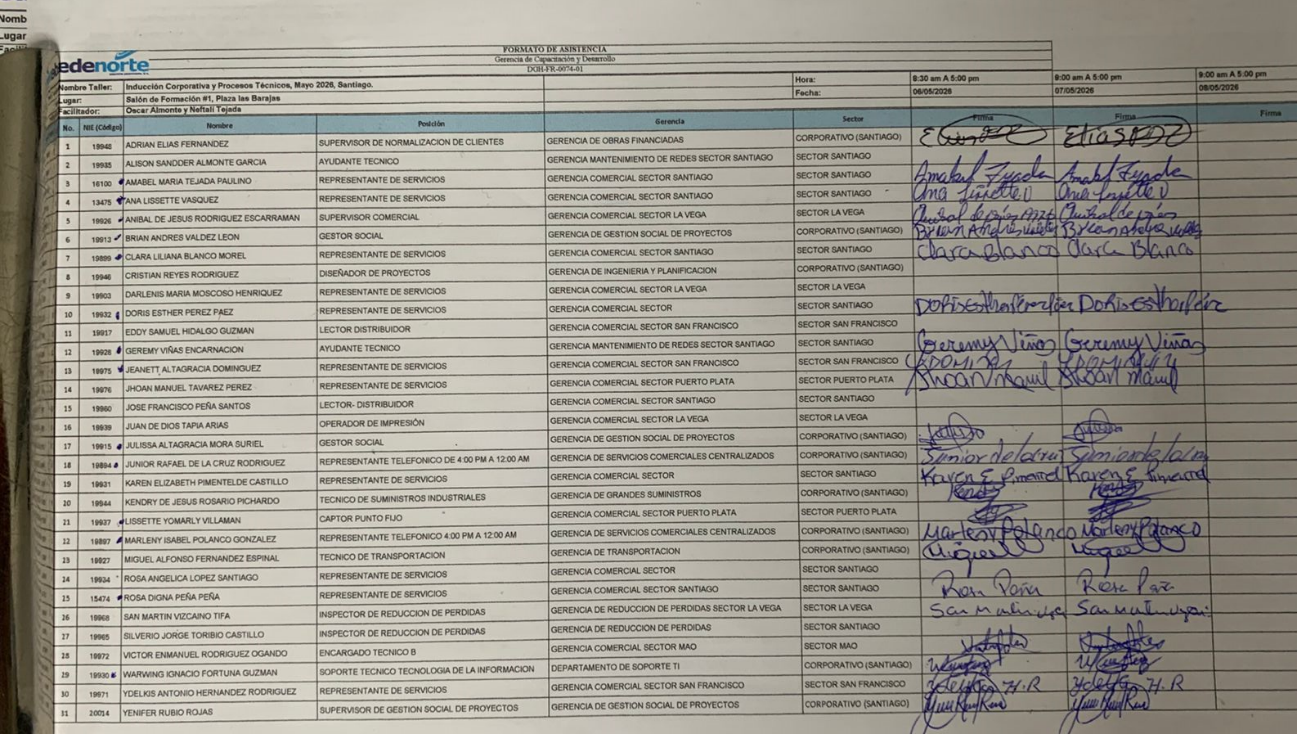 Nomb
Lugar
edenorte
FORMATO DE ASISTENCIA
Gerencia de Capacitación y Desarrollo
DGH-FR-0074-01
Nombre Taller: Inducción Corporativa y Procesos Técnicos, Mayo 2026, Santiago. Hora: 8:30 am A 5:00 pm 9:00 am A 5:00 pm 9:00 am A 5:00 pm
Lugar: Salón de Formación #1, Plaza las Barajas Fecha: 06/05/2026 07/05/2026 08/05/2026
Facilitador: Oscar Almonte y Neftali Tejada
No. NIE (Código) Nombre Posición Gerencia Sector Firma Firma Firma
1 19948 ADRIAN ELIAS FERNANDEZ SUPERVISOR DE NORMALIZACION DE CLIENTES GERENCIA DE OBRAS FINANCIADAS CORPORATIVO (SANTIAGO)
2 19935 ALISON SANDDER ALMONTE GARCIA AYUDANTE TECNICO GERENCIA MANTENIMIENTO DE REDES SECTOR SANTIAGO SECTOR SANTIAGO
3 16100 AMABEL MARIA TEJADA PAULINO REPRESENTANTE DE SERVICIOS GERENCIA COMERCIAL SECTOR SANTIAGO SECTOR SANTIAGO Amabel Tejada Amabel Tejada
4 13475 ANA LISSETTE VASQUEZ REPRESENTANTE DE SERVICIOS GERENCIA COMERCIAL SECTOR SANTIAGO SECTOR SANTIAGO Ana Ana
5 19926 ANIBAL DE JESUS RODRIGUEZ ESCARRAMAN SUPERVISOR COMERCIAL GERENCIA COMERCIAL SECTOR LA VEGA SECTOR LA VEGA
6 19913 BRIAN ANDRES VALDEZ LEON GESTOR SOCIAL GERENCIA DE GESTION SOCIAL DE PROYECTOS CORPORATIVO (SANTIAGO)
7 19899 CLARA LILIANA BLANCO MOREL REPRESENTANTE DE SERVICIOS GERENCIA COMERCIAL SECTOR SANTIAGO SECTOR SANTIAGO Clara Blanco Clara Blanco
8 19946 CRISTIAN REYES RODRIGUEZ DISEÑADOR DE PROYECTOS GERENCIA DE INGENIERIA Y PLANIFICACION CORPORATIVO (SANTIAGO)
9 19903 DARLENIS MARIA MOSCOSO HENRIQUEZ REPRESENTANTE DE SERVICIOS GERENCIA COMERCIAL SECTOR LA VEGA SECTOR LA VEGA
10 19932 DORIS ESTHER PEREZ PAEZ REPRESENTANTE DE SERVICIOS GERENCIA COMERCIAL SECTOR SECTOR SANTIAGO
11 19917 EDDY SAMUEL HIDALGO GUZMAN LECTOR DISTRIBUIDOR GERENCIA COMERCIAL SECTOR SAN FRANCISCO SECTOR SAN FRANCISCO
12 19928 GEREMY VIÑAS ENCARNACION AYUDANTE TECNICO GERENCIA MANTENIMIENTO DE REDES SECTOR SANTIAGO SECTOR SANTIAGO Geremy Viñas Geremy Viñas
13 19975 JEANETT ALTAGRACIA DOMINGUEZ REPRESENTANTE DE SERVICIOS GERENCIA COMERCIAL SECTOR SAN FRANCISCO SECTOR SAN FRANCISCO
14 19976 JHOAN MANUEL TAVAREZ PEREZ REPRESENTANTE DE SERVICIOS GERENCIA COMERCIAL SECTOR PUERTO PLATA SECTOR PUERTO PLATA
15 19960 JOSE FRANCISCO PEÑA SANTOS LECTOR- DISTRIBUIDOR GERENCIA COMERCIAL SECTOR SANTIAGO SECTOR SANTIAGO
16 19939 JUAN DE DIOS TAPIA ARIAS OPERADOR DE IMPRESIÓN GERENCIA COMERCIAL SECTOR LA VEGA SECTOR LA VEGA
17 19915 JULISSA ALTAGRACIA MORA SURIEL GESTOR SOCIAL GERENCIA DE GESTION SOCIAL DE PROYECTOS CORPORATIVO (SANTIAGO)
18 19894 JUNIOR RAFAEL DE LA CRUZ RODRIGUEZ REPRESENTANTE TELEFONICO DE 4:00 PM A 12:00 AM GERENCIA DE SERVICIOS COMERCIALES CENTRALIZADOS CORPORATIVO (SANTIAGO)
19 19931 KAREN ELIZABETH PIMENTELDE CASTILLO REPRESENTANTE DE SERVICIOS GERENCIA COMERCIAL SECTOR SECTOR SANTIAGO Karen E Pimentel Karen E Pimentel
20 19944 KENDRY DE JESUS ROSARIO PICHARDO TECNICO DE SUMINISTROS INDUSTRIALES GERENCIA DE GRANDES SUMINISTROS CORPORATIVO (SANTIAGO)
21 19937 LISSETTE YOMARLY VILLAMAN CAPTOR PUNTO FIJO GERENCIA COMERCIAL SECTOR PUERTO PLATA SECTOR PUERTO PLATA
22 19897 MARLENY ISABEL POLANCO GONZALEZ REPRESENTANTE TELEFONICO 4:00 PM A 12:00 AM GERENCIA DE SERVICIOS COMERCIALES CENTRALIZADOS CORPORATIVO (SANTIAGO) Marleny Polanco Marleny Polanco
23 19927 MIGUEL ALFONSO FERNANDEZ ESPINAL TECNICO DE TRANSPORTACION GERENCIA DE TRANSPORTACION CORPORATIVO (SANTIAGO)
24 19934 ROSA ANGELICA LOPEZ SANTIAGO REPRESENTANTE DE SERVICIOS GERENCIA COMERCIAL SECTOR SECTOR SANTIAGO
25 15474 ROSA DIGNA PEÑA PEÑA REPRESENTANTE DE SERVICIOS GERENCIA COMERCIAL SECTOR SANTIAGO SECTOR SANTIAGO Rosa Peña Rosa Peña
26 19968 SAN MARTIN VIZCAINO TIFA INSPECTOR DE REDUCCION DE PERDIDAS GERENCIA DE REDUCCION DE PERDIDAS SECTOR LA VEGA SECTOR LA VEGA
27 19965 SILVERIO JORGE TORIBIO CASTILLO INSPECTOR DE REDUCCION DE PERDIDAS GERENCIA DE REDUCCION DE PERDIDAS SECTOR SANTIAGO
28 19972 VICTOR ENMANUEL RODRIGUEZ OGANDO ENCARGADO TECNICO B GERENCIA COMERCIAL SECTOR MAO SECTOR MAO
29 19930 WARWING IGNACIO FORTUNA GUZMAN SOPORTE TECNICO TECNOLOGIA DE LA INFORMACION DEPARTAMENTO DE SOPORTE TI CORPORATIVO (SANTIAGO)
30 19971 YDELKIS ANTONIO HERNANDEZ RODRIGUEZ REPRESENTANTE DE SERVICIOS GERENCIA COMERCIAL SECTOR SAN FRANCISCO SECTOR SAN FRANCISCO
31 20014 YENIFER RUBIO ROJAS SUPERVISOR DE GESTION SOCIAL DE PROYECTOS GERENCIA DE GESTION SOCIAL DE PROYECTOS CORPORATIVO (SANTIAGO)